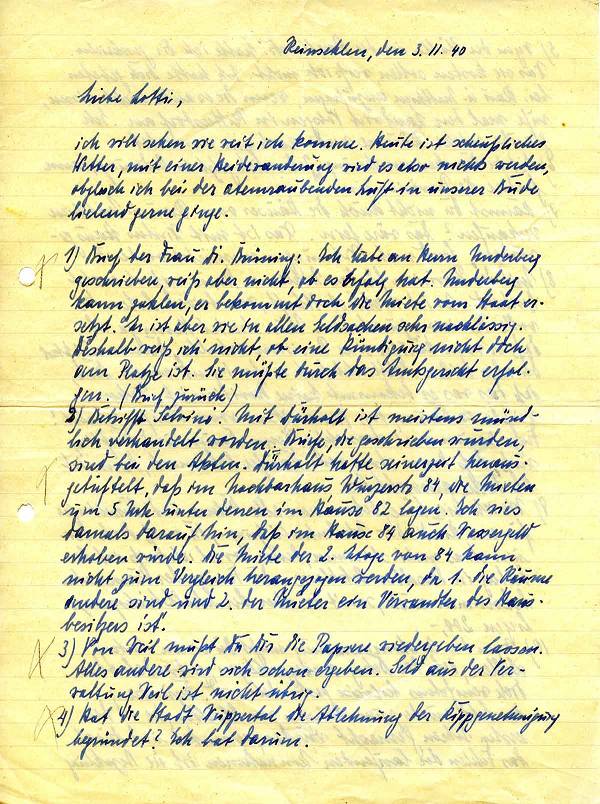 Reinsehlen, den 3.11.40
Liebe Lotti,
ich will sehen wie weit ich komme. Heute ist scheußliches
Wetter, mit einer Heidewanderung wird es also nichts werden,
obgleich ich bei der atemraubenden Luft in unserer Bude
liebend gerne ginge.
1) Brief der Frau Dr. Brüning: Ich habe an Herrn Underberg
geschrieben, weiß aber nicht, ob es Erfolg hat. Underberg
kann zahlen, er bekommt doch die Miete vom Staat er-
setzt. Er ist aber wie in allen Geldsachen sehr nachlässig.
Deshalb weiß ich nicht, ob eine Kündigung nicht doch
am Platze ist. Sie müßte durch das Amtsgericht erfol-
gen. (Brief zurück)
2) Betrifft Mit Dürholt ist meistens münd-
lich verhandelt worden. Briefe, die geschrieben wurden,
sind bei den Akten. Dürholt hatte seinerzeit heraus-
getüftelt, daß im Nachbarhaus, 84, die Mieten
um 5 Mk. unter denen im Hause 82 lagen. Ich wies
damals darauf hin, daß im Hause 84 auch Wassergeld
erhoben würde. Die Miete der 2. Etage von 84 kann
nicht zum Vergleich herangezogen werden, da 1. die Räume
andere sind und 2. der Mieter ein Verwandter des Haus-
besitzers ist.
3) Von Weil mußt Du Dir die Papiere wiedergeben lassen.
Alles andere wird sich schon ergeben. Geld aus der Ver-
waltung Weil ist nicht übrig.
4) Hat die Stadt Wuppertal die Ablehnung der
begründet? Ich bat darum.